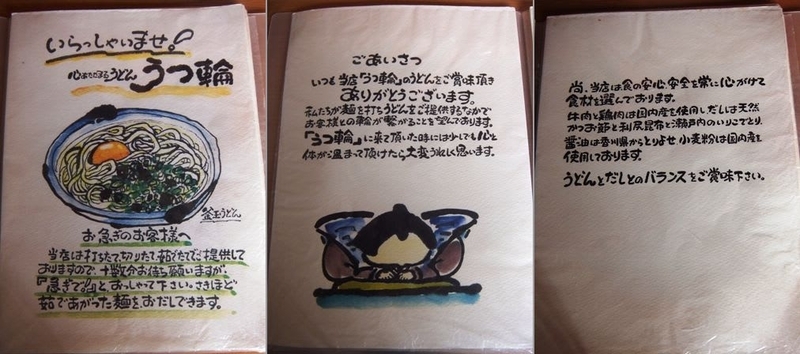 いらっしゃいませ。
心はなまるうどん うつ輪
釜玉うどん
お急ぎのお客様へ
当店は打ちたて切りたて茹でたてでご提供して
おりますので、十数分お待ち願いますが、
『急ぎで!!』とおっしゃって下さい。さきほど
茹であがった麺をおだしできます。
ごあいさつ
いつも当店『うつ輪』のうどんをご賞味頂き
ありがとうございます。
私たちが麺を打ちうどんをご提供するなかで
お客様との輪が繋がることを望んでおります。
『うつ輪』に来て頂いた時には少しでも心と
体が温まって頂けたら大変うれしく思います。
尚、当店は食の安心、安全を常に心がけて
食材を選んでおります。
牛肉と鶏肉は国内産を使用しだしは天然
かつお節と利尻昆布と瀬戸内のいりこでとり、
醤油は香川県からとりよせ小麦粉は国内産を
使用しております。
うどんとだしとのバランスをご賞味下さい。